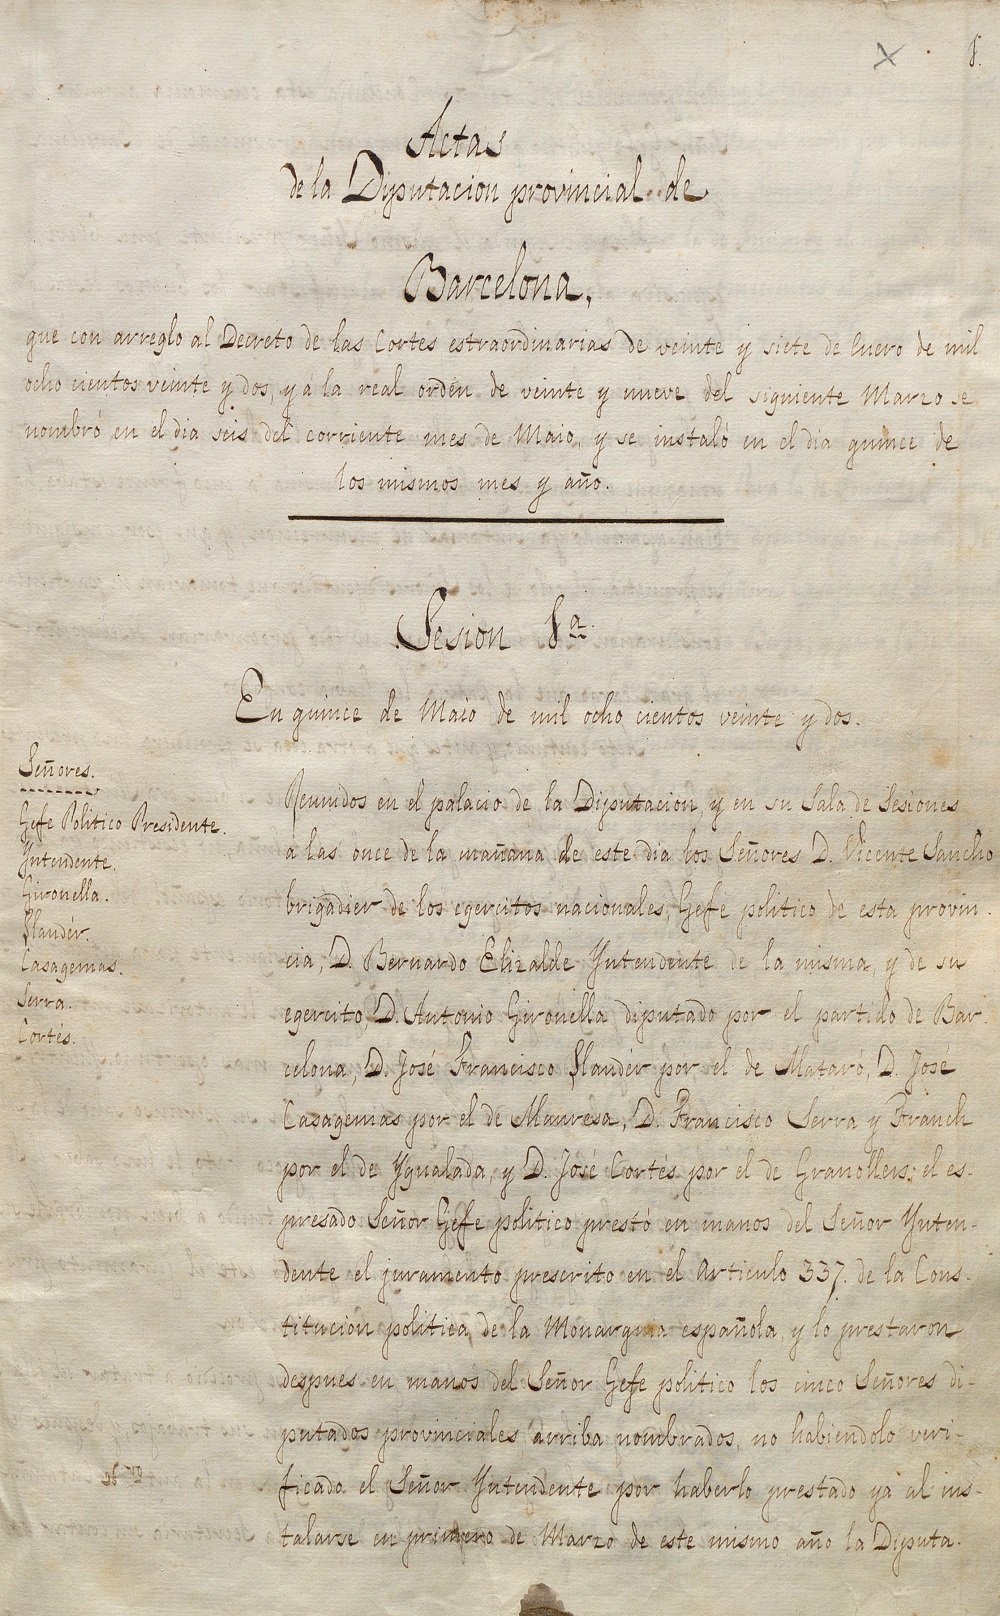 1.
Actas
de la Diputacion provincial de
Barcelona,
que con arreglo al Decreto de las Cortes estraordinarias de veinte y siete de Enero de mil
ocho cientos veinte y dos, y á la real orden de veinte y nueve del siguiente Marzo se
nombró en el dia seis del corriente mes de Maio, y se instaló en el dia quince de
los mismos mes y año.
Sesion 1ª.
En quince de Maio de mil ocho cientos veinte y dos.
Señores.
Gefe Politico Presidente.
Yntendente.
Gironella.
Llandér.
Casagemas.
Serra.
Cortés.
Reunidos en el palacio de la Diputacion, y en su Sala de Sesiones
a las once de la mañana de este dia los Señores D. Vicente Sancho
brigadier de los egercitos nacionales, Gefe politico de esta provin-
cia, D. Bernardo Elizalde Yntendente de la misma, y de su
egercito, D. Antonio Gironella diputado por el partido de Bar-
celona, D. José Francisco Llandér por el de Mataró, D. José
Casagemas por el de Manresa, D. Francisco Serra y Franch
por el de Ygualada, y D. José Cortés por el de Granollers; el es-
presado Señor Gefe politico prestó en manos del Señor Ynten-
dente el juramento prescrito en el articulo 337. de la Cons-
titucion politica de la Monarquia española, y lo prestaron
despues en manos del Señor Gefe politico los cinco Señores di-
putados provinciales arriba nombrados, no habiendolo veri-
ficado el Señor Yntendente por haberlo prestado ya al ins-
talarse en primero de Marzo de este mismo año la Diputa-